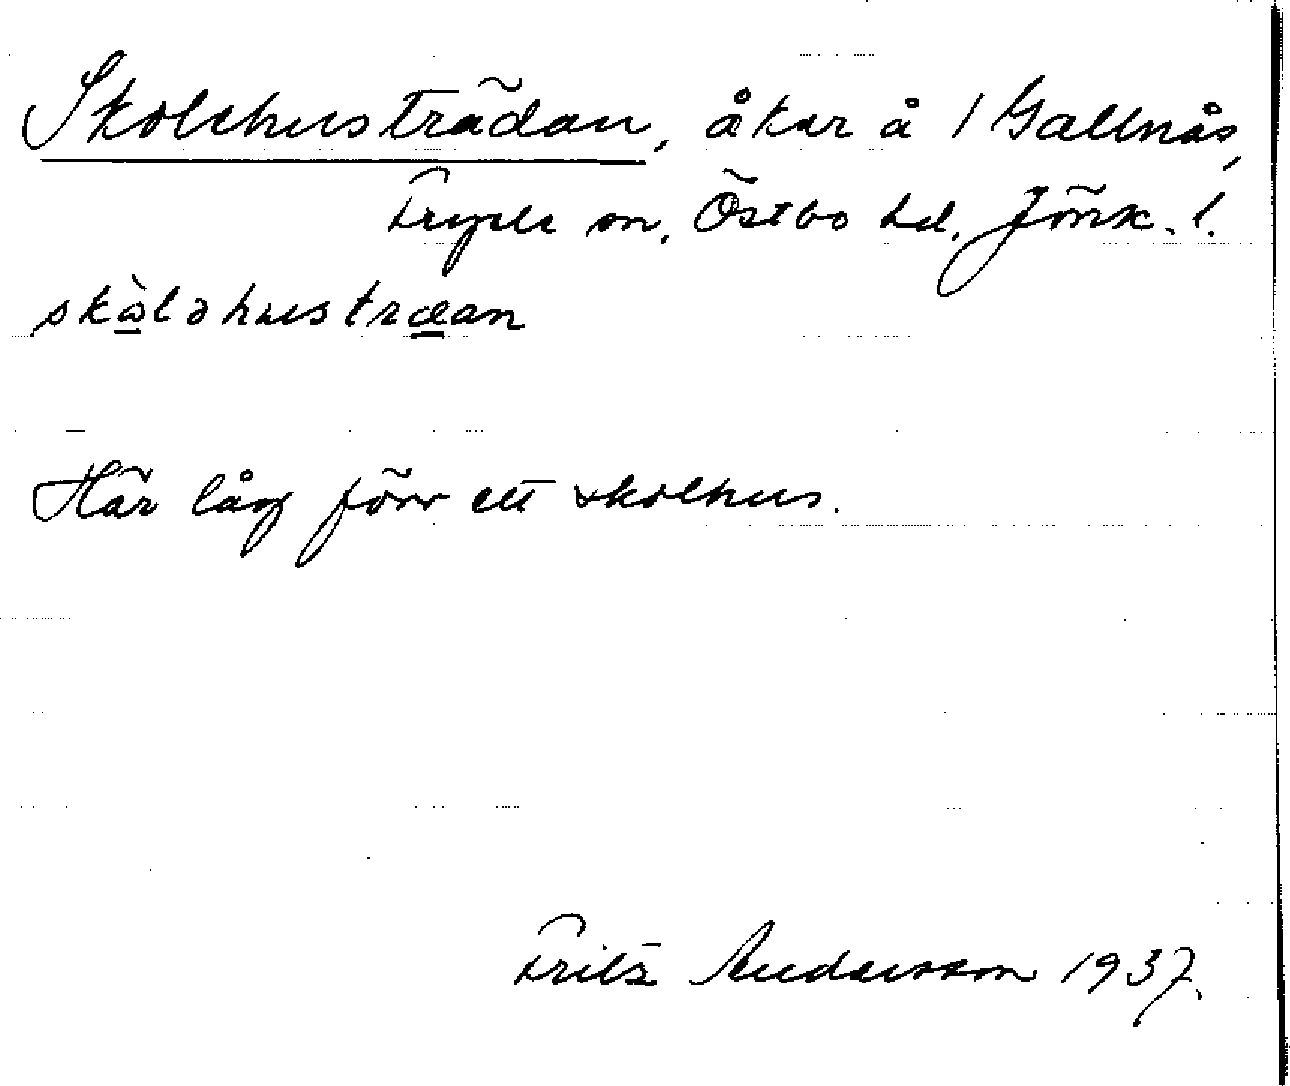 Skolehusträdan, åker å 1 Gallnås,
Fryele sn, Östbo hd. Jönk. l.
skòlǝhustræan
Här låg förr ett skolhus.
Fritz Andersson 1937.